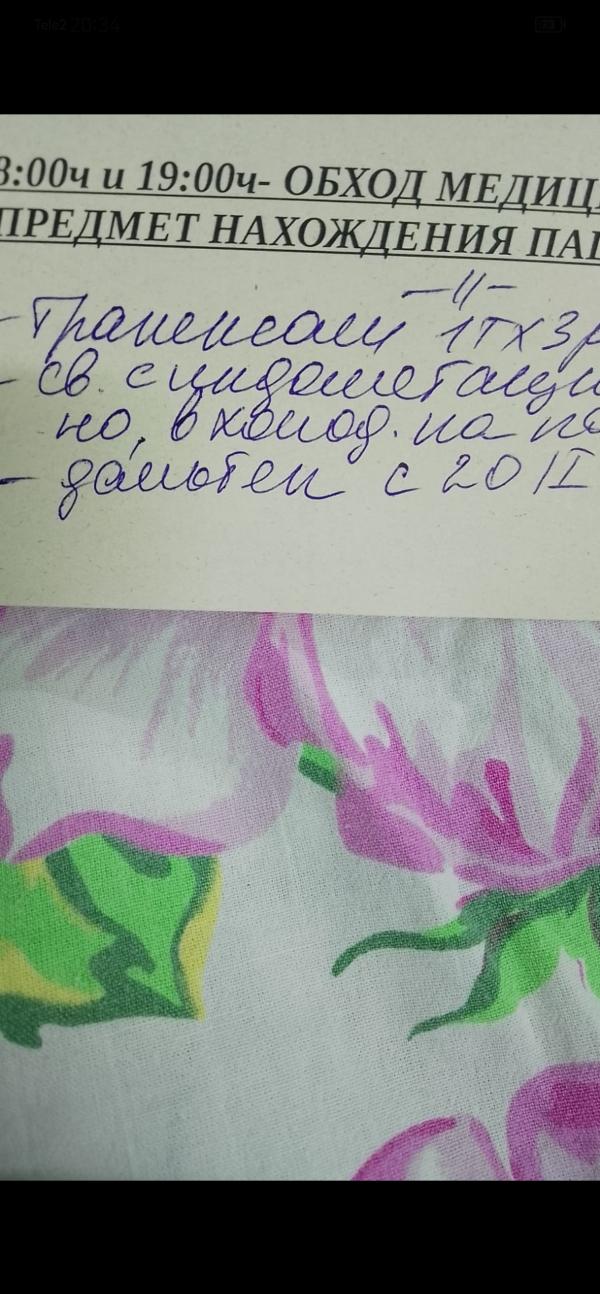 Tele2 20:34
8:00ч и 19:00ч- ОБХОД МЕДИЦ
ПРЕДМЕТ НАХОЖДЕНИЯ ПАЦ
—//—
- Транексам 1т х 3р
- св. с индометаци
но, в холод. на по
- дальтеп с 20 II